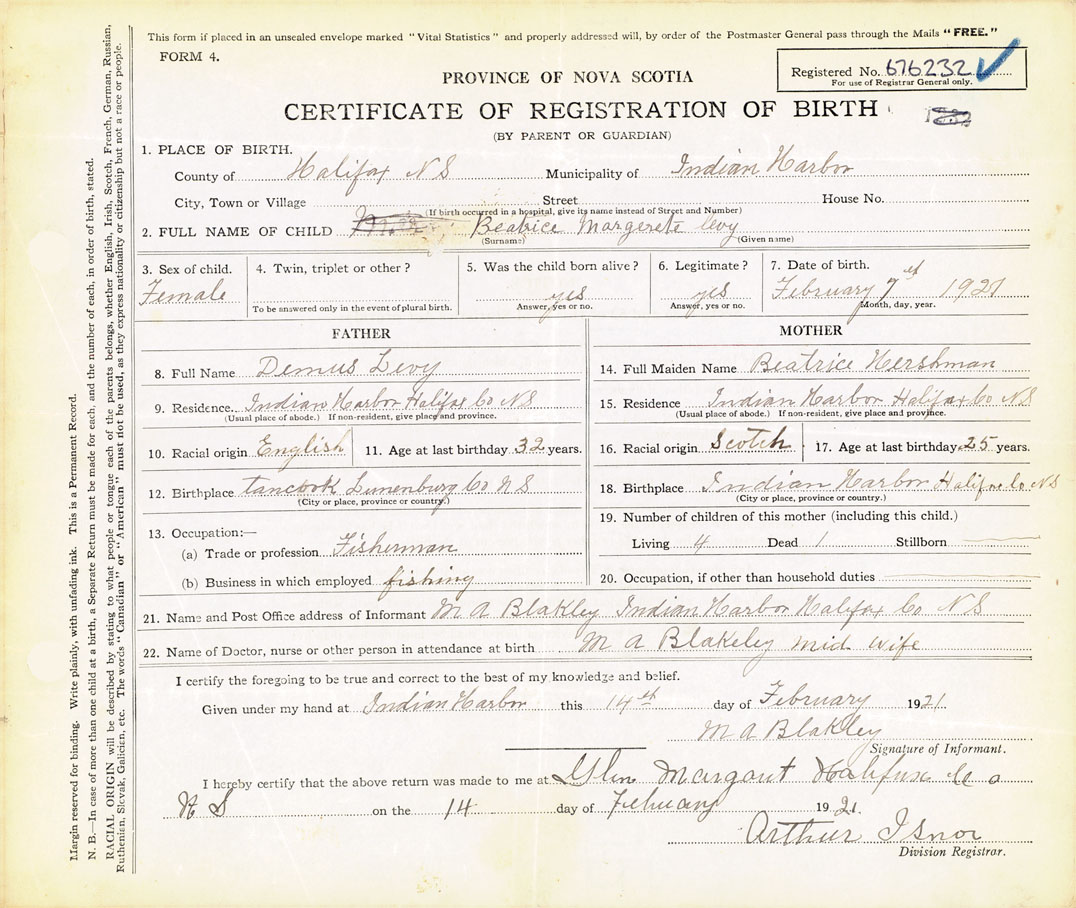 This form if placed in an unsealed envelope marked "Vital Statistics" and properly addressed will, by order of the Postmaster General pass through the Mails "FREE."
FORM 4.
Registered No. 676232
For use of Registrar General only.
PROVINCE OF NOVA SCOTIA
CERTIFICATE OF REGISTRATION OF BIRTH
(BY PARENT OR GUARDIAN)
1. PLACE OF BIRTH.
County of Halifax N S Municipality of Indian Harbor
City, Town or Village Street House No.
(If birth occurred in a hospital, give its name instead of Street and Number)
2. FULL NAME OF CHILD Beatrice Margerete levy
(Surname) (Given name)
3. Sex of child. 4. Twin, triplet or other? 5. Was the child born alive? 6. Legitimate? 7. Date of birth.
Female yes yes February 7 1921
To be answered only in the event of plural birth. Answer, yes or no. Answer, yes or no. Month, day, year.
FATHER
8. Full Name Demus Levy
9. Residence. Indian Harbor Halifax Co N S
(Usual place of abode.) If non-resident, give place and province.
10. Racial origin English 11. Age at last birthday 32 years.
12. Birthplace tancook Lunenburg Co N S
(City or place, province or country.)
13. Occupation:—
(a) Trade or profession Fisherman
(b) Business in which employed fishing
MOTHER
14. Full Maiden Name Beatrice Hershman
15. Residence Indian Harbor Halifax Co N S
(Usual place of abode.) If non-resident, give place and province.
16. Racial origin Scotch 17. Age at last birthday 25 years.
18. Birthplace Indian Harbor Halifax Co N S
(City or place, province or country.)
19. Number of children of this mother (including this child.)
Living 4 Dead 1 Stillborn
20. Occupation, if other than household duties
21. Name and Post Office address of Informant M A Blakley Indian Harbor Halifax Co N S
22. Name of Doctor, nurse or other person in attendance at birth M A Blakeley mid wife
I certify the foregoing to be true and correct to the best of my knowledge and belief.
Given under my hand at Indian Harbor this 14th day of February 1921
M A Blakley
Signature of Informant.
I hereby certify that the above return was made to me at Glen Margaret Halifax Co
N S on the 14 day of February 1921.
Arthur Isnor
Division Registrar.
Margin reserved for binding. Write plainly, with unfading ink. This is a Permanent Record.
N. B.—In case of more than one child at a birth, a Separate Return must be made for each, and the number of each, in order of birth, stated.
RACIAL ORIGIN will be described by stating to what people or tongue each of the parents belongs, whether English, Irish, Scotch, French, German, Russian,
Ruthenian, Slovak, Galician, etc. The words "Canadian" or "American" must not be used, as they express nationality or citizenship but not a race or people.